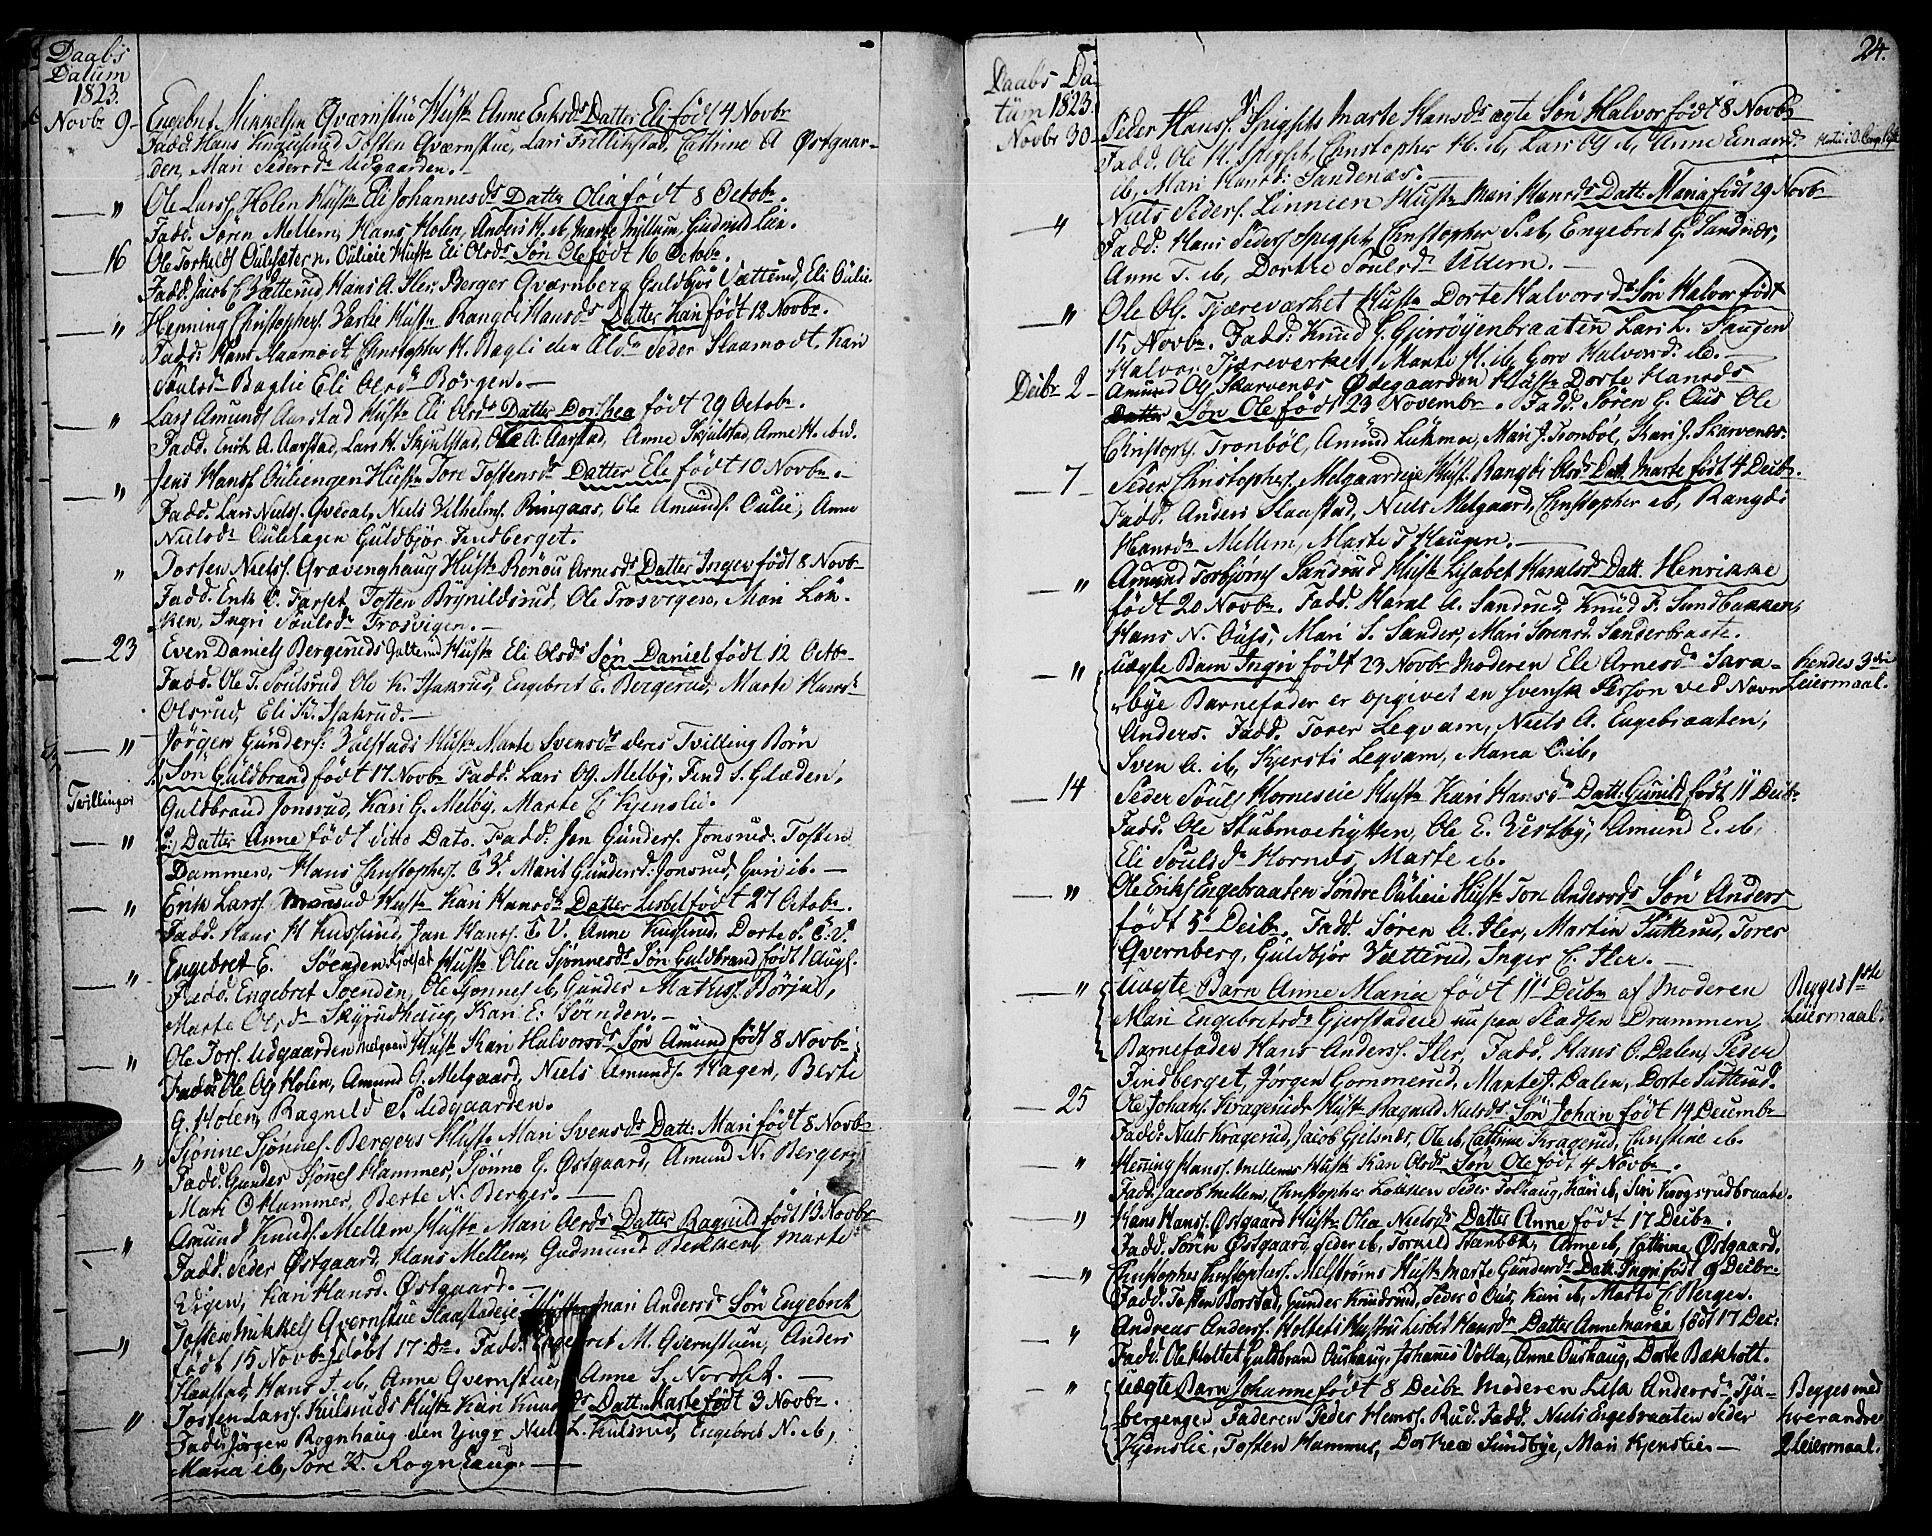 Daabs
Datum
1823.
Novbr 9 Engebret Mikkels. Qværnstue Hust. Anne Eriksd. Datter Eli født 4 Novbr
Fadd. Hans Tosten Qværnstue, Lars Cattrine A Østgaar-
den, Mari Pedersd. Udgaarden.
— " Ole Larss. Holen Hust. Eli Johannesd. Datter Olea født 8 Octobr.
Fadd. Søren Mellem, Hans Holen, Anders H. ib, Marte Millum, Gudmund
16 Ole Torkelds. Hust. Eli Olsd. Søn Ole født 16 Octobr.
Fadd. Jacob C Vætterud, Hans A. Iler, Berger Qværnberg, Guldbjør Vætterud, Eli Oulie.
— " Henning Christophers. Hust. Rangdi Hansd. Datter Kari født 12 Novbr.
Fadd. Hans Aamodt, Christopher H. Bagli den Ald. Peder Aamodt, Kari
Poulsd. Baglie Eli Olsd. Børgen.
" Lars Amunds. Aarstad Hust. Eli Olsd. Datter Dorthea født 29 Octobr.
Fadd. Erik A. Aarstad, Lars H. Skjulstad, Ole A. Aarstad, Anne Skjulstad, Anne H. ibid.
" Jens Hans. Ouliengen Hust. Tore Tostensd. Datter Ele født 10 Novbr.
Fadd. Lars Nielss. Qveal, Niels Vilhelms. Ringaas, Ole Amunds. Oulie, Anne
Nielsd. Oulehagen Guldbjør Findberget.
" Tosten Nielss. Gravenghaug Hust. Rønou Arnesd. Datter Inger født 8 Novbr
Fadd. Erik C. Farset, Tosten Brynildsrud, Ole Trosvigen, Mari Løk-
ken, Ingri Poulsd. Trosvigen.
— 23 Even Daniels. Bergeruds Hust. Eli Olsd. Søn Daniel født 12 Octbr
Fadd. Ole T. Poulsrud Ole K. Isakrud, Engebret E. Bergerud, Marte Hansd.
Olsrud, Eli K. Isakrud.
— " Jørgen Gunders. Valstads Hust. Marte Svensd. deres Tvilling Børn
1, Søn Guldbrand født 17 Novbr Fadd. Lars Melby, Find S. Glæden,
Tvillinger Guldbrand Jonsrud, Kari G. Melby, Marte C Kjenslie.
— " 2, Datter Anne født ditto Dato. Fadd. Jon Gunders. Jonsrud. Tosten
Dammen, Hans Christophers. E V. Marit Gundersd. Jonsrud, Guri ib.
— " Erik Larss. Hust. Kari Hansd. Datter Lisbet født 27 Octobr.
Fadd. Hans H Kusrud, Jan Hanss. E V. Anne Kusrud, Dorte P. E. V.
— " Engebret E. Søenden Hust. Olia Sjønnesd. Søn Guldbrand født 1 Aug.
Fadd. Engebret Søenden, Ole Sjønnes. ib, Gunder
Marte Olsd. Skyrudhaug, Kari E. Søenden.
— " Ole Tors. Udgaarden Melgaard Hust. Kari Halvorsd. Søn Amund født 8 Novbr
Fadd. Ole Ols. Holen, Amund G. Melgaard, Niels Amunds. Hagen, Berte
G. Holen, Ragnild P. Udgaarden.
— " Sjønne Sjønnes. Bergers Hust. Mari Svensd. Datt. Mari født 8 Novbr
Fadd. Gunder Sjønnes. Hammer, Sjønne G. Østgaard, Amund N. Berger
Mari O Hammer, Berte N. Berger.
— " Amund Knuds. Mellem Hust. Mari Olsd. Datter Ragnild født 13 Novbr
Fadd. Peder Østgaard, Hans Mellem, Gudmund Bekken, Marte
Vigen, Kari Hansd. Østgaard.
— " Tosten Mikkels. Qvernstue Hust. Mari Andersd. Søn Engebret
født 15 Novbr Døbt 17 Do. Fadd. Engebret M. Qvernstuen, Anders
Hans A. ib, Anne Qvernstue, Anne S. Nordset.
— " Tosten Larss. Kulsruds Hust. Kari Knudsd. Datt. Marte født 3 Novbr.
Fadd. Jørgen Rognhaug den Yngr Niels L. Kulsrud, Engebret N. ib,
Maria ib, Tore K. Rognhaug.
24.
Daabs Da-
tum 1823.
Novbr 30 Peder Hanss. Spigset Marte Hansd. ægte Søn Halvor født 8 Novbr
Fadd. Ole H. Spigset, Christopher H. ib, Lars Ols. ib, Anne Einarsd.
ib, Mari Hansd. Sandenæs.
— " Niels Peders. Linnien Hust. Mari Hansd. Datt. Maria født 29 Novb
Fadd. Hans Peders. Spigset, Christopher P. ib, Engebret G. Sandnæs,
Anne T. ib, Dorthe Poulsd. Uldern.
— " Ole Ols. Tjæreværket Hust. Dorte Halvorsd. Søn Halvor født
15 Novbr. Fadd. Knud G. Gjersøyenbraaten Lars L. Haugen
Halvor Tjæreværket, Marte H. ib, Goro Halvorsd. ib.
Decbr 2 Amund Ols. Skarvenæs Ødegaarden Hust. Dorte Hansd.
Datter Søn Ole født 23 Novembr. Fadd. Søren G. Ous Ole
Christophs. Tronbøl, Amund Lukmoe, Mari J. Tronbøl, Kari J. Skarvenæs.
— 7 Peder Christophers. Melgaardeie Hust. Rangdi Olsd. Datt. Marte født 4 Decbr.
Fadd. Anders Haastad, Niels Melgaard, Christopher ib, Rangdi
Hansd. Mellem, Marte T Haugen.
— " Amund Torbjørns. Sandrud Hust. Lisabet Haralsd. Datt. Henrikke
født 20 Novbr. Fadd. Haral A. Sandrud, Knud P. Sundbakken,
Hans N. Ouss, Mari S. Sander, Mari Sørensd. Sanderbraate.
— " uægte Barn Ingri født 23 Novbr Moderen Ele Arnesd. Tara- hendes 3die
bye Barnefader er opgivet en svensk Person ved Navn Leiermaal.
Anders. Fadd. Torer Legvam, Niels A. Engebraaten,
Sven A. ib, Kjersti Legvam, Maria O. ib.
— 14 Peder Pouls. Horneseie Hust. Kari Hansd. Datt. Gunild født 11 Decbr.
Fadd. Ole Stubmoehytten, Ole E. Vestby, Amund E. ib,
Eli Poulsd. Hornes, Marte ib.
— " Ole Eriks. Engebraaten Søndre Oulieie Hust. Tore Andersd. Søn Anders
født 5 Decbr. Fadd. Søren A. Iler, Martin Sutterud, Torer
Qvernberg, Guldbjør Vætterud, Inger C. Iler.
— " uægte Barn Anne Maria født 11 Decbr af Moderen Begges 1ste
Mari Engebretsd. Gjerstadeie nu paa Pladsen Drammen, Leiermaal.
Barnefader Hans Anderss. Iler, Fadd. Hans O. Dalen, Peder
Findberget, Jørgen Gommerud, Marte J. Dalen, Dorte Sutterud.
— 25 Ole Johans. Kragerud Hust. Ragnild Nielsd. Søn Johan født 14 Decembr
Fadd. Niels Kragerud, Jacob Gjelsnæs, Ole ib, Cattrine Kragerud, Christine ib.
— " Henning Hanss. Mellem Hust. Kari Olsd. Søn Ole født 4 Novbr.
Fadd. Jacob Mellem, Christopher Løkken Peder Tolhaug, Kari ib, Siri Krogsrudbraate.
— " Hans Hans. Østgaard Hust. Olea Nielsd. Datter Anne født 17 Decbr.
Fadd. Søren Østgaard, Peder ib, Torkild Stenbek, Anne ib, Cattrine Østgaard.
— " Christopher Christophers. Melstrøms Hust. Marte Gundersd. Datt. Ingri født 9 Decbr.
Fadd. Tosten Borstad, Gunder Knudsrud, Peder O Ous, Kari ib, Marte C Berger.
— " Andreas Anderss. Holtets Hustru Lisbet Hansd. Datter Anne Maria født 17 Dec.
Fadd. Ole Holtet Guldbrand Oushaug, Johannes Volla, Anne Oushaug, Dorte Bakholt.
— " uægte Barn Johanne født 8 Decbr Moderen Lisa Andersd. Tjæ- Begges med
bergengen Faderen Peder Hanss. Rud. Fadd. Niels Engebraaten Peder hverandre
Kjenslie, Tosten Hammer, Dorthea Sundbye, Mari Kjenslie. 2 Leiermaal.